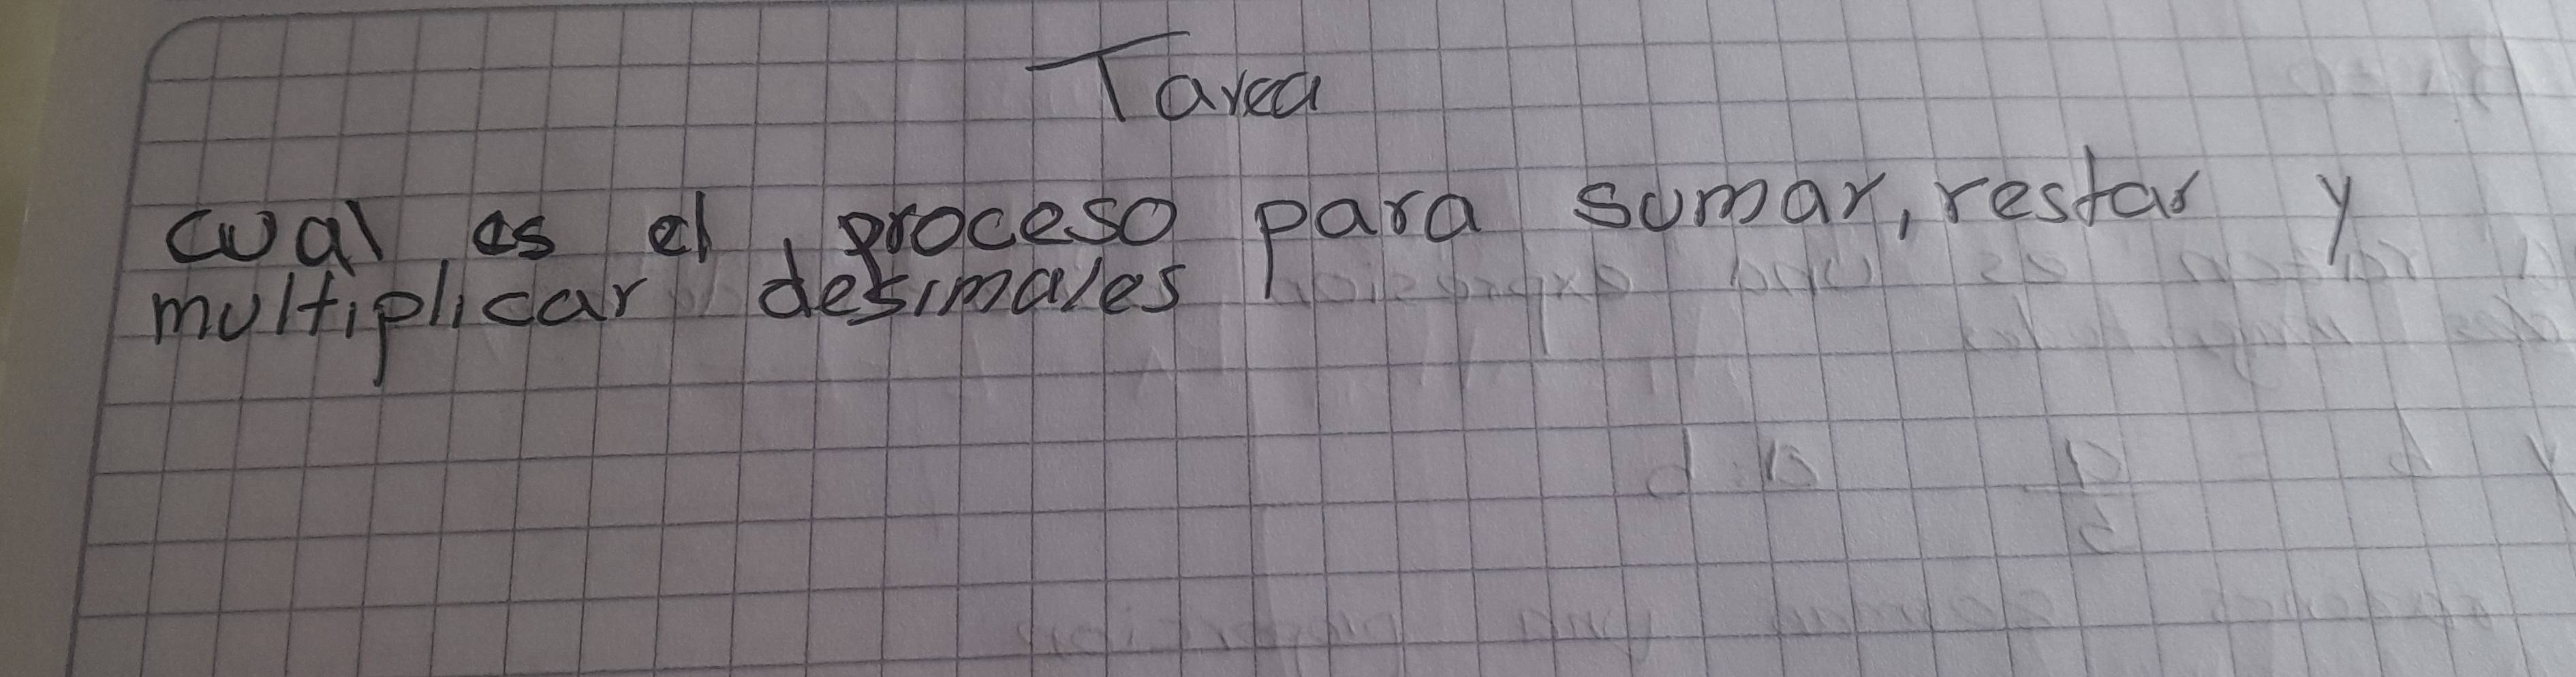 Tarea
cual es el proceso para sumar, restar y
multiplicar desimales